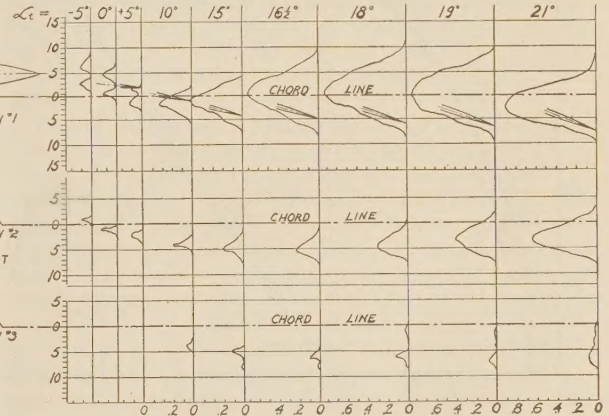 αt = -5° 0° +5° 10° 15° 16½° 18° 19° 21°
15
10
5
0
5
10
15
CHORD LINE
5
0
5
10
CHORD LINE
T
5
0
5
10
CHORD LINE
0 .2 0 .2 0 .4 .2 0 .6 .4 .2 0 .6 .4 .2 0 .8 .6 .4 .2 0